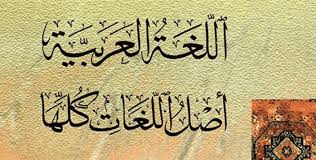 اللغة العربية
أصل اللغات كلها